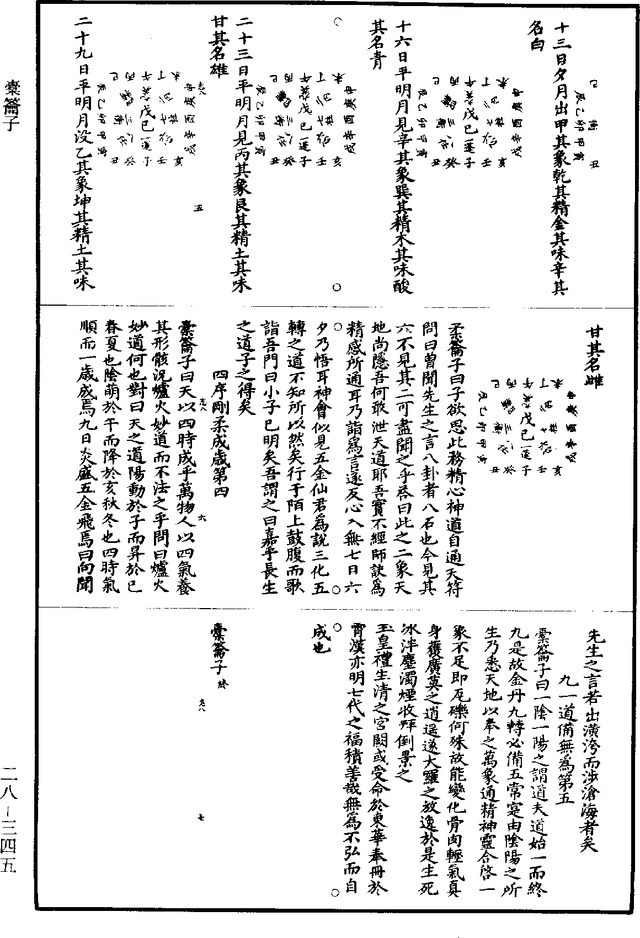 十三日夕月出甲其象乾其精金其味辛其
名白
十六日平明月見辛其象巽其精木其味酸
其名青
二十三日平明月見丙其象艮其精土其味
甘其名雄
二十九日平明月没乙其象坤其精土其味
甘其名雌
柔籥子曰子欲思此務精心神道自通天符
問曰曾聞先生之言八卦者八石也今見其
六不見其二可盡聞之乎荅曰此之二象天
地尚隱吾何敢泄天道耶吾實不經師訣爲
精感所通耳乃詣爲言遂反心入無七日六
夕乃悟耳神會似見五金仙君爲説三化五
轉之道不知所以然矣行于陌上鼓腹而歌
詣吾門曰小子已明矣吾謂之曰嘉乎長生
之道子之得矣
四序剛柔成歲第四
橐籥子曰天以四時成乎萬物人以四氣養
其形骸況爐火妙道而不法之乎問曰爐火
妙道何也對曰天之道陽動於子而昇於巳
春夏也陰萌於午而降於亥秋冬也四時氣
順而一歲成焉九日炎盛五金飛焉曰向聞
先生之言若出潢洿而涉滄海者矣
九一道備無爲第五
橐籥子曰一陰一陽之謂道夫道始一而終
九是故金丹九轉必備五常寔由陰陽之所
生乃悉天地以奉之萬象通精神靈合啓一
象不足即瓦礫何殊故能變化骨肉輕氣真
身獲廣莫之逍遥遂大羅之放逸於是生死
冰泮塵濁煙收拜倒景之
玉皇禮生清之宫闕或受命於東華奉冊於
霄漢亦明七代之福積善哉無爲不弘而自
成也
橐籥子
橐籥子
五
六
七
二八-三四五